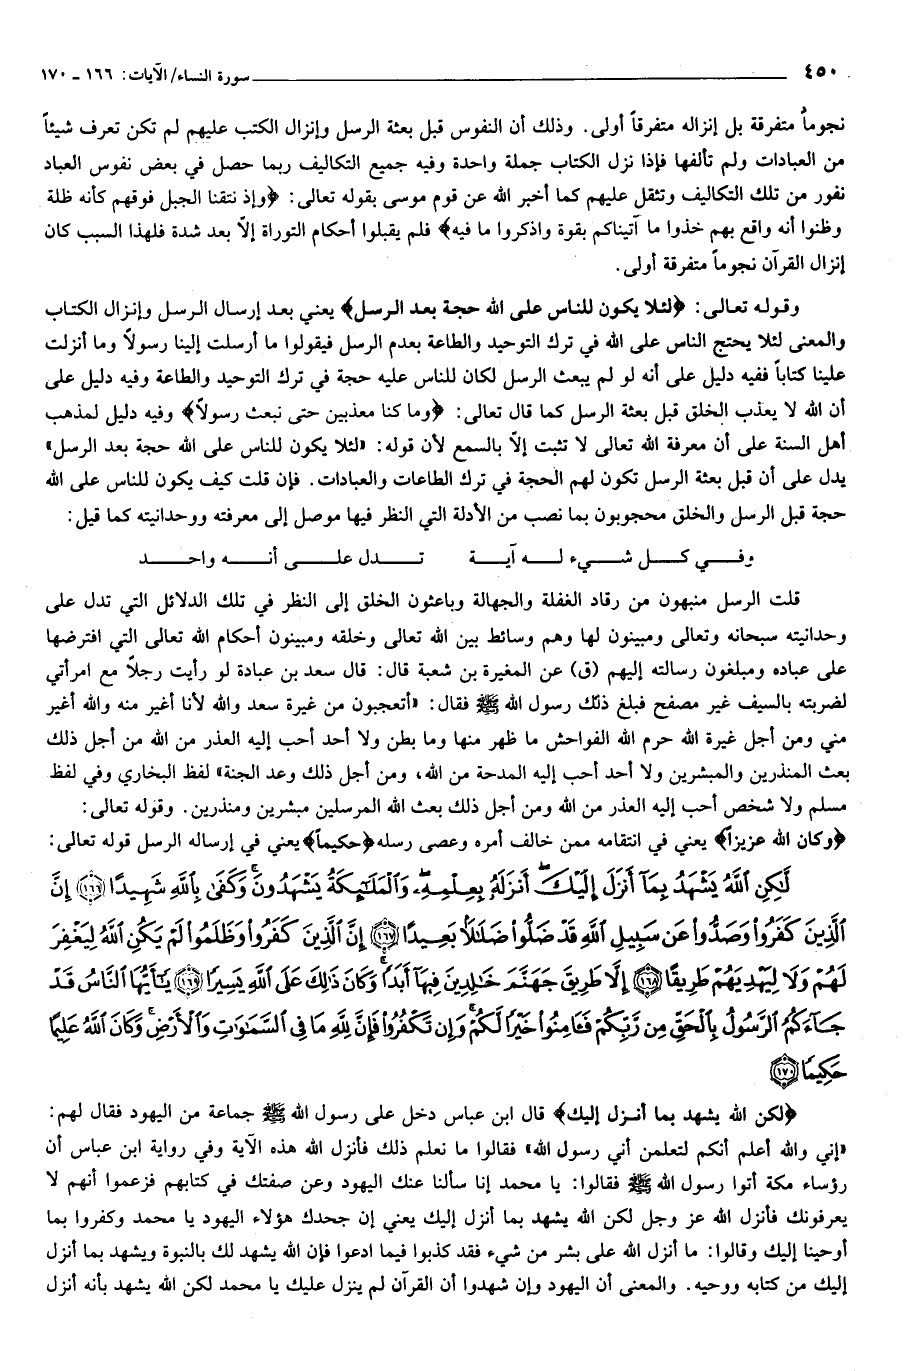 ٤٥٠ سورة النساء/ الآيات: ١٦٦ ـ ١٧٠
نجوماً متفرقة بل إنزاله متفرقاً أولى. وذلك أن النفوس قبل بعثة الرسل وإنزال الكتب عليهم لم تكن تعرف شيئاً
من العبادات ولم تألفها فإذا نزل الكتاب جملة واحدة وفيه جميع التكاليف ربما حصل في بعض نفوس العباد
نفور من تلك التكاليف وتثقل عليهم كما أخبر الله عن قوم موسى بقوله تعالى: ﴿وإذ نتقنا الجبل فوقهم كأنه ظلة
وظنوا أنه واقع بهم خذوا ما آتيناكم بقوة واذكروا ما فيه﴾ فلم يقبلوا أحكام التوراة إلّا بعد شدة فلهذا السبب كان
إنزال القرآن نجوماً متفرقة أولى.
وقوله تعالى: ﴿لئلا يكون للناس على الله حجة بعد الرسل﴾ يعني بعد إرسال الرسل وإنزال الكتاب
والمعنى لئلا يحتج الناس على الله في ترك التوحيد والطاعة بعدم الرسل فيقولوا ما أرسلت إلينا رسولاً وما أنزلت
علينا كتاباً ففيه دليل على أنه لو لم يبعث الرسل لكان للناس عليه حجة في ترك التوحيد والطاعة وفيه دليل على
أن الله لا يعذب الخلق قبل بعثة الرسل كما قال تعالى: ﴿وما كنا معذبين حتى نبعث رسولاً﴾ وفيه دليل لمذهب
أهل السنة على أن معرفة الله تعالى لا تثبت إلّا بالسمع لأن قوله: «لئلا يكون للناس على الله حجة بعد الرسل»
يدل على أن قبل بعثة الرسل تكون لهم الحجة في ترك الطاعات والعبادات. فإن قلت كيف يكون للناس على الله
حجة قبل الرسل والخلق محجوبون بما نصب من الأدلة التي النظر فيها موصل إلى معرفته ووحدانيته كما قيل:
وفي كل شيء له آية تدل على أنه واحد
قلت الرسل منبهون من رقاد الغفلة والجهالة وباعثون الخلق إلى النظر في تلك الدلائل التي تدل على
وحدانيته سبحانه وتعالى ومبينون لها وهم وسائط بين الله تعالى وخلقه ومبينون أحكام الله تعالى التي افترضها
على عباده ومبلغون رسالته إليهم (ق) عن المغيرة بن شعبة قال: قال سعد بن عبادة لو رأيت رجلاً مع امرأتي
لضربته بالسيف غير مصفح فبلغ ذلك رسول الله ﷺ فقال: «أتعجبون من غيرة سعد والله لأنا أغير منه والله أغير
مني ومن أجل غيرة الله حرم الله الفواحش ما ظهر منها وما بطن ولا أحد أحب إليه العذر من الله من أجل ذلك
بعث المنذرين والمبشرين ولا أحد أحب إليه المدحة من الله، ومن أجل ذلك وعد الجنة» لفظ البخاري وفي لفظ
مسلم ولا شخص أحب إليه العذر من الله ومن أجل ذلك بعث الله المرسلين مبشرين ومنذرين. وقوله تعالى:
﴿وكان الله عزيزاً﴾ يعني في انتقامه ممن خالف أمره وعصى رسله﴿حكيماً﴾يعني في إرساله الرسل قوله تعالى:
لَّٰكِنِ ٱللَّهُ يَشْهَدُ بِمَآ أَنزَلَ إِلَيْكَ أَنزَلَهُۥ بِعِلْمِهِۦ وَٱلْمَلَٰٓئِكَةُ يَشْهَدُونَ وَكَفَىٰ بِٱللَّهِ شَهِيدًا ﴿١٦٦﴾ إِنَّ
ٱلَّذِينَ كَفَرُوا۟ وَصَدُّوا۟ عَن سَبِيلِ ٱللَّهِ قَدْ ضَلُّوا۟ ضَلَٰلًۢا بَعِيدًا ﴿١٦٧﴾ إِنَّ ٱلَّذِينَ كَفَرُوا۟ وَظَلَمُوا۟ لَمْ يَكُنِ ٱللَّهُ لِيَغْفِرَ
لَهُمْ وَلَا لِيَهْدِيَهُمْ طَرِيقًا ﴿١٦٨﴾ إِلَّا طَرِيقَ جَهَنَّمَ خَٰلِدِينَ فِيهَآ أَبَدًا وَكَانَ ذَٰلِكَ عَلَى ٱللَّهِ يَسِيرًا ﴿١٦٩﴾ يَٰٓأَيُّهَا ٱلنَّاسُ قَدْ
جَآءَكُمُ ٱلرَّسُولُ بِٱلْحَقِّ مِن رَّبِّكُمْ فَـَٔامِنُوا۟ خَيْرًا لَّكُمْ وَإِن تَكْفُرُوا۟ فَإِنَّ لِلَّهِ مَا فِى ٱلسَّمَٰوَٰتِ وَٱلْأَرْضِ وَكَانَ ٱللَّهُ عَلِيمًا
حَكِيمًا ﴿١٧٠﴾
﴿لكن الله يشهد بما أنزل إليك﴾ قال ابن عباس دخل على رسول الله ﷺ جماعة من اليهود فقال لهم:
«إني والله أعلم أنكم لتعلمن أني رسول الله» فقالوا ما نعلم ذلك فأنزل الله هذه الآية وفي رواية ابن عباس أن
رؤساء مكة أتوا رسول الله ﷺ فقالوا: يا محمد إنا سألنا عنك اليهود وعن صفتك في كتابهم فزعموا أنهم لا
يعرفونك فأنزل الله عز وجل لكن الله يشهد بما أنزل إليك يعني إن جحدك هؤلاء اليهود يا محمد وكفروا بما
أوحينا إليك وقالوا: ما أنزل الله على بشر من شيء فقد كذبوا فيما ادعوا فإن الله يشهد لك بالنبوة ويشهد بما أنزل
إليك من كتابه ووحيه. والمعنى أن اليهود وإن شهدوا أن القرآن لم ينزل عليك يا محمد لكن الله يشهد بأنه أنزل